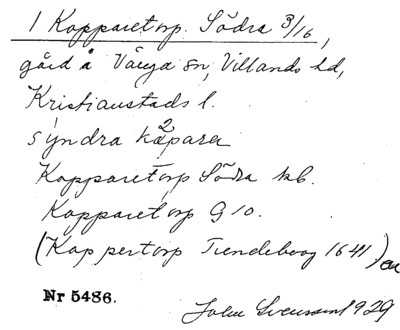 1 Kopparetorp. Södra 3/16,
gård å Vånga sn, Villands hd,
Kristianstads l.
syndra kåpara
Kopparetorp Södra kb.
Kopparetorp G 10.
(Koppertorp Tiendeboog 1641)
Nr 5486.
John Svensson 1929